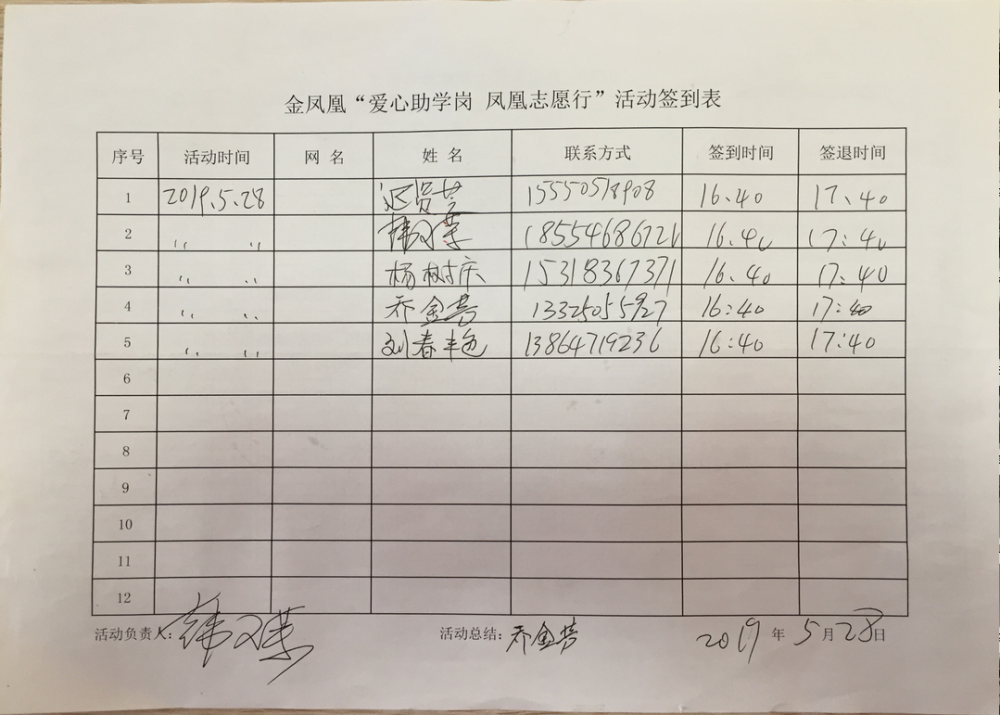 金凤凰“爱心助学岗 凤凰志愿行”活动签到表
序号 活动时间 网名 姓名 联系方式 签到时间 签退时间
1 2019.5.28 迟贤芸 15550518908 16.40 17.40
2 〃 〃 18554686721 16.40 17:40
3 〃 〃 杨树庆 15318367371 16.40 17:40
4 〃 〃 乔金芳 13325055927 16:40 17:40
5 〃 〃 刘春艳 13864719236 16:40 17:40
6
7
8
9
10
11
12
活动负责人: 活动总结: 乔金芳 2019年5月28日